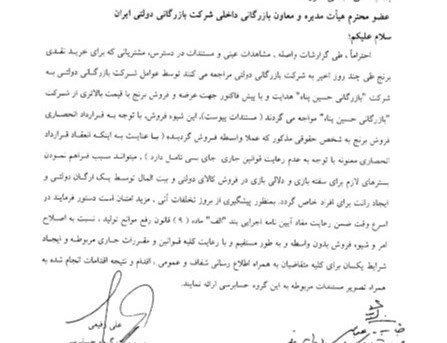 عضو محترم هیأت مدیره و معاون بازرگانی داخلی شرکت بازرگانی دولتی ایران
سلام علیکم؛
احتراماً، طی گزارشات واصله، مشاهدات عینی و مستندات در دسترس، مشتریانی که برای خرید نقدی
برنج طی چند روز اخیر به شرکت بازرگانی دولتی مراجعه می کنند توسط عوامل شرکت بازرگانی دولتی به
شرکت "بازرگانی حسین پناه" هدایت و با پیش فاکتور جهت عرضه و فروش برنج با قیمت بالاتری از شرکت
"بازرگانی حسین پناه" مواجه می گردند ( مستندات پیوست)، این شیوه فروش، با توجه به قرارداد انحصاری
فروش برنج به شخص حقوقی مذکور که عملا واسطه فروش گردیده ( با عنایت به اینکه انعقاد قرارداد
انحصاری معنونه با توجه به عدم رعایت قوانین جاری جای بسی تامل دارد ) ، میتواند سبب فراهم نمودن
بسترهای لازم برای سفته بازی و دلالی بازی در فروش کالای دولتی و بیت المال توسط یک ارگان دولتی و
ایجاد رانت برای افراد خاص گردد. بمنظور پیشگیری از بروز تخلفات آتی، مزید امتنان است دستور فرمایند در
اسرع وقت ضمن رعایت مفاد آیین نامه اجرایی بند "الف" ماده ( ۹ ) قانون رفع موانع تولید ، نسبت به اصلاح
امر و شیوه فروش بدون واسطه و به طور مستقیم و با رعایت کلیه قوانین و مقررات جاری مربوطه و ایجاد
شرایط یکسان برای کلیه متقاضیان به همراه اطلاع رسانی شفاف و عمومی ، اقدام و نتیجه اقدامات انجام شده به
همراه تصویر مستندات مربوطه به این گروه حسابرسی ارائه نمایند.
علی رفیعی